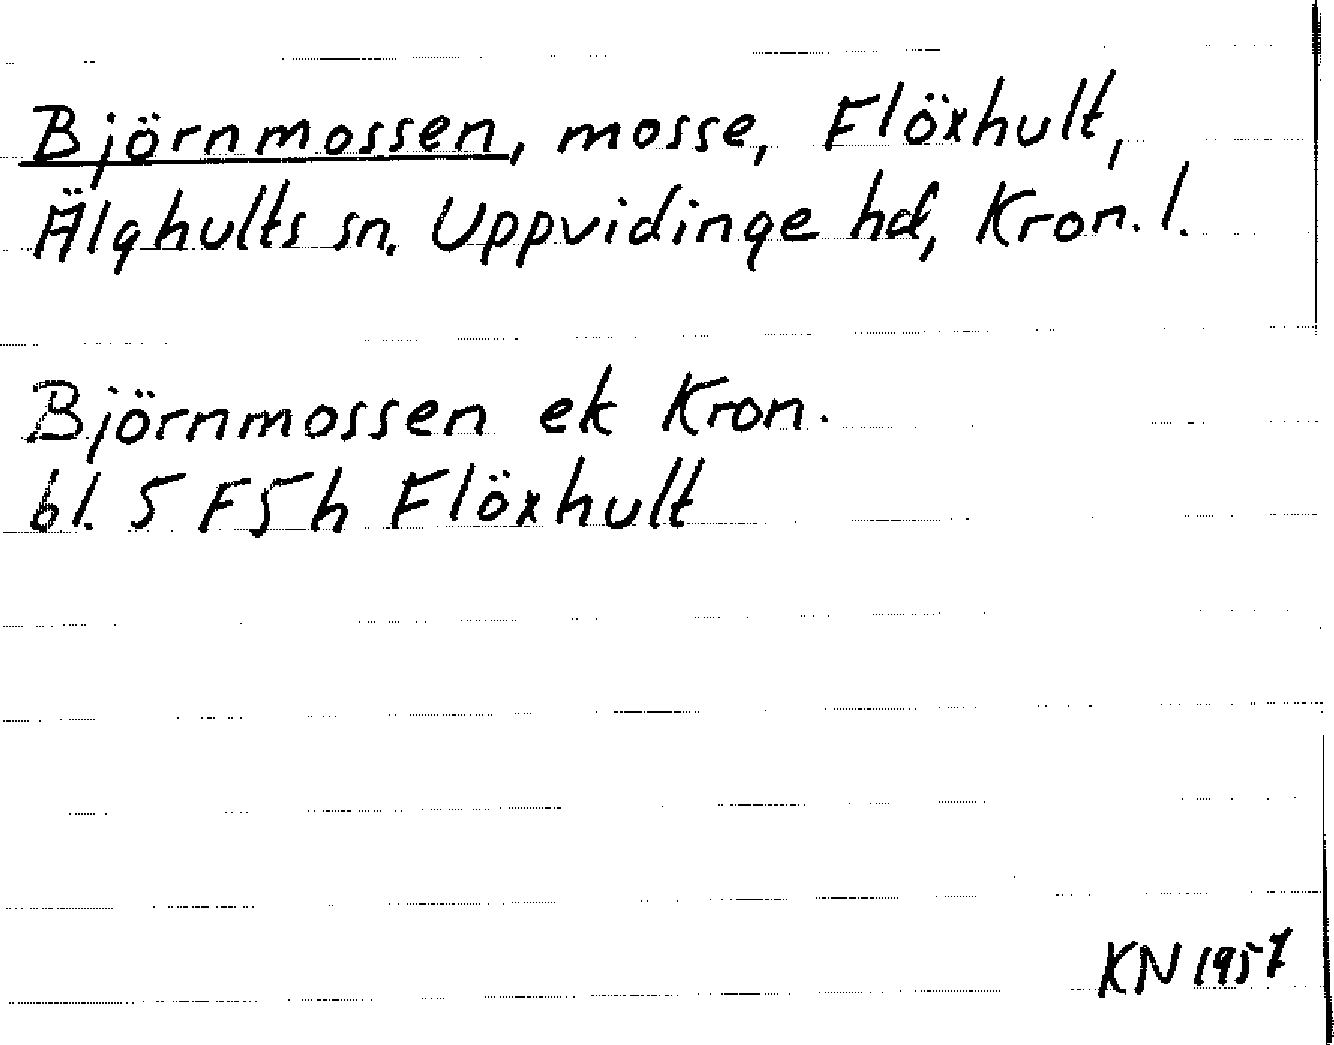 Björnmossen, mosse, Flöxhult,
Älghults sn. Uppvidinge hd, Kron. l.
Björnmossen ek Kron.
bl. 5 F5h Flöxhult
KN 1957